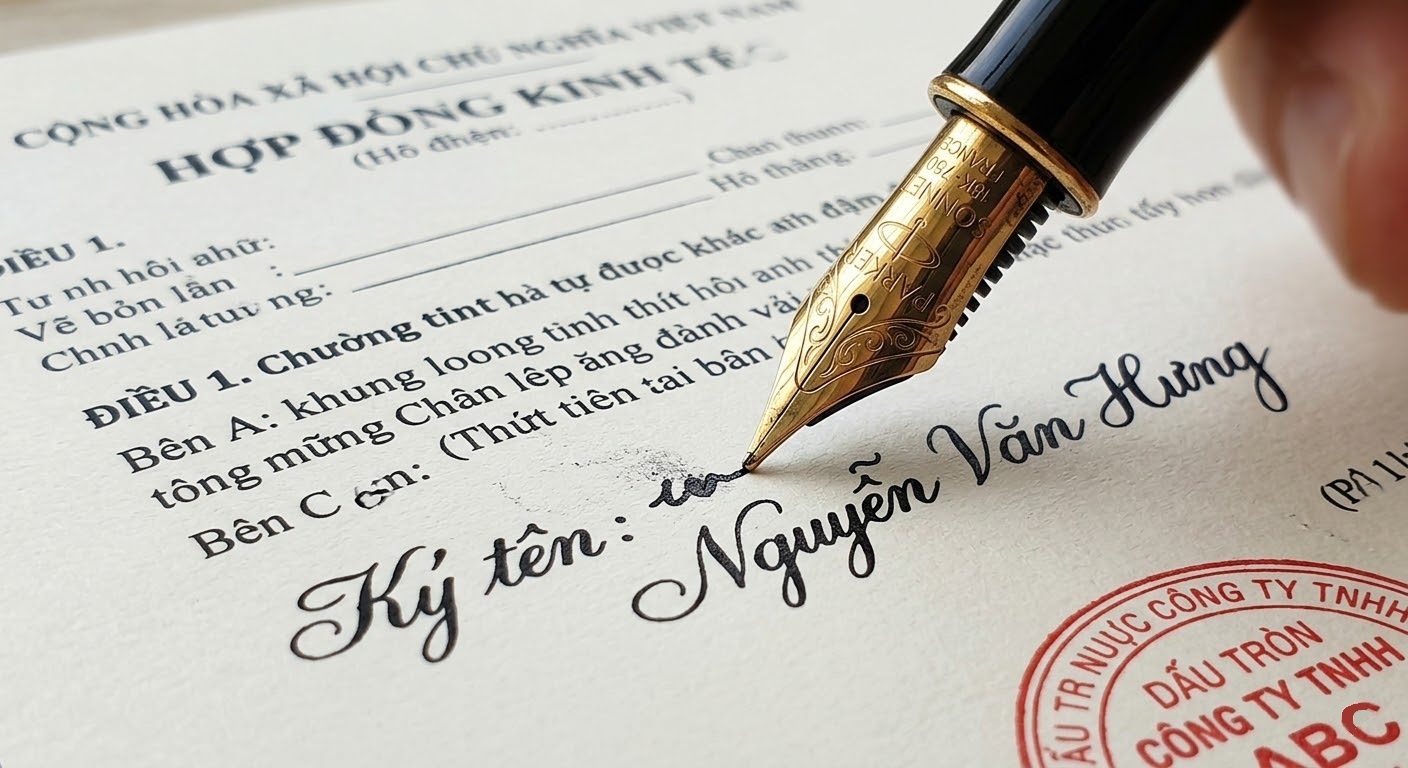 CỘNG HÒA XÃ HỘI CHỦ NGHĨA VIỆT NAM
HỢP ĐỒNG KINH TẾ
(Hô đhện: ............)
Hô thăng:
ĐIỀU 1.
Tư nh hôi ahữ:
Vẽ bỏn lần :
Chnh lá tuư ng:
ĐIỀU 1. Chường tint hà tự được khác anh đậm
Bên A: khung loong tinh thít hôi anh
tông mững Chân lêp ăng đành vải
Bên C (Thứt tiên tai bân
Ký tên :
Nguyễn Văn Hưng
PARKER
SONNET
18K-750
FRANCE
CÔNG TY TNHH
DẤU TRÒN
CÔNG TY TNHH
ABC